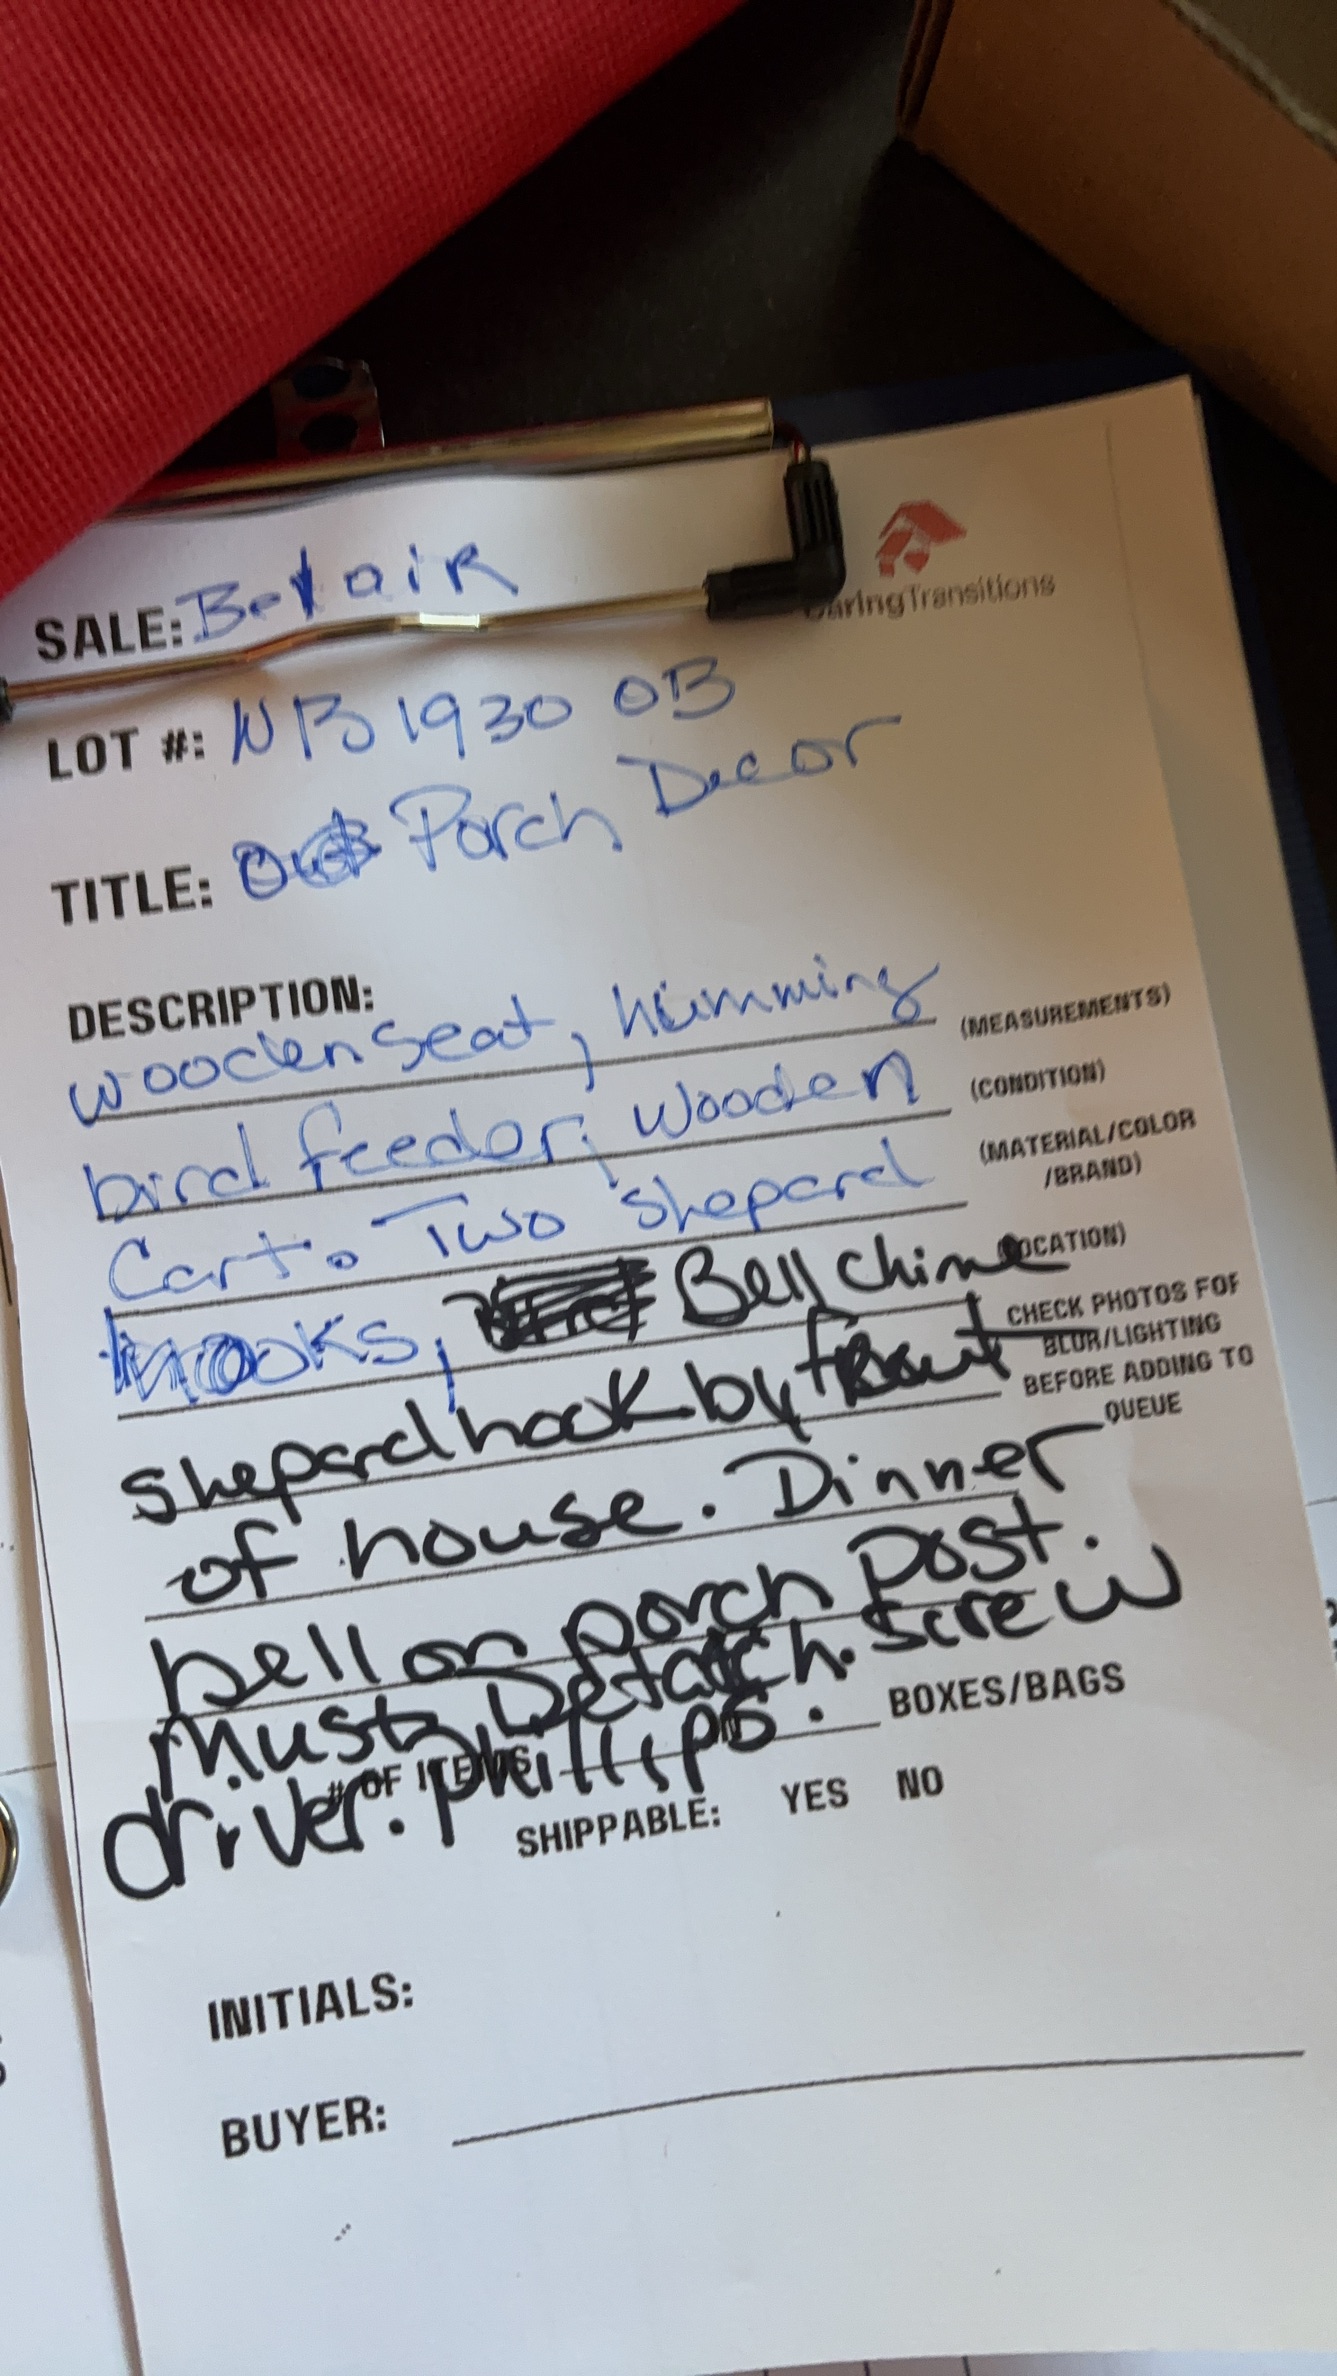 SALE: Belair
CaringTransitions
LOT #: NB 1930 OB
TITLE: Porch Decor
DESCRIPTION:
wooden seat, humming
(MEASUREMENTS)
bird feeder, wooden
(CONDITION)
Cart. Two Shepard
(MATERIAL/COLOR
/BRAND)
hooks, Bell chime
(LOCATION)
shepard hook by front
CHECK PHOTOS FOR
BLUR/LIGHTING
BEFORE ADDING TO
QUEUE
of house. Dinner
bell on porch post.
must Detatch. Screw
driver. phillips.
# OF ITEMS BOXES/BAGS
SHIPPABLE: YES NO
INITIALS:
BUYER: